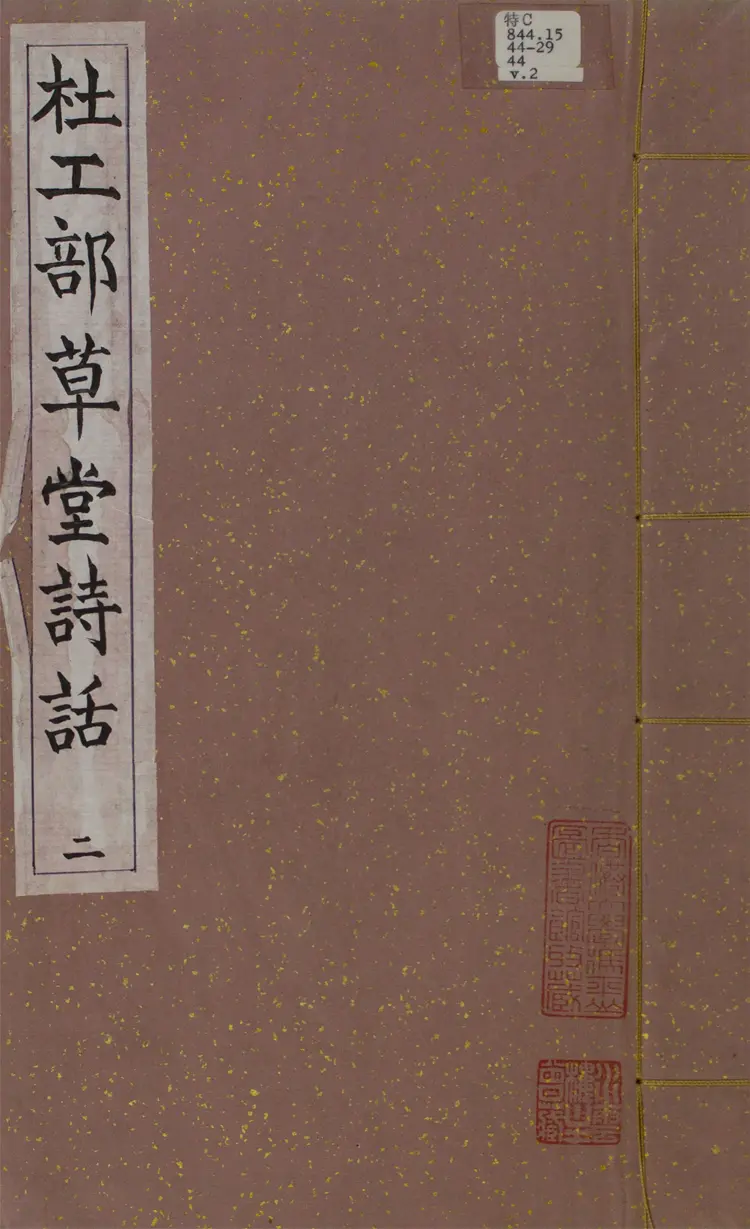 杜工部草堂詩話 二
特C
844.15
44-29
44
v.2